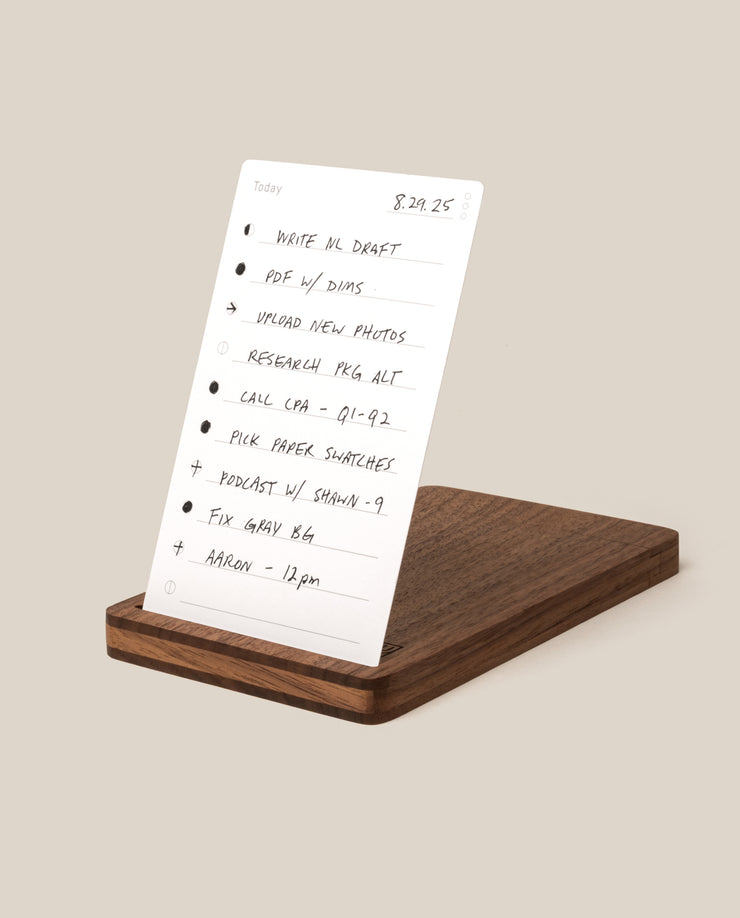 Today
8.29.25
WRITE NL DRAFT
PDF W/ DIMS
UPLOAD NEW PHOTOS
RESEARCH PKG ALT
CALL CPA - Q1-Q2
PICK PAPER SWATCHES
PODCAST W/ SHAWN - 9
FIX GRAY BG
AARON - 12pm